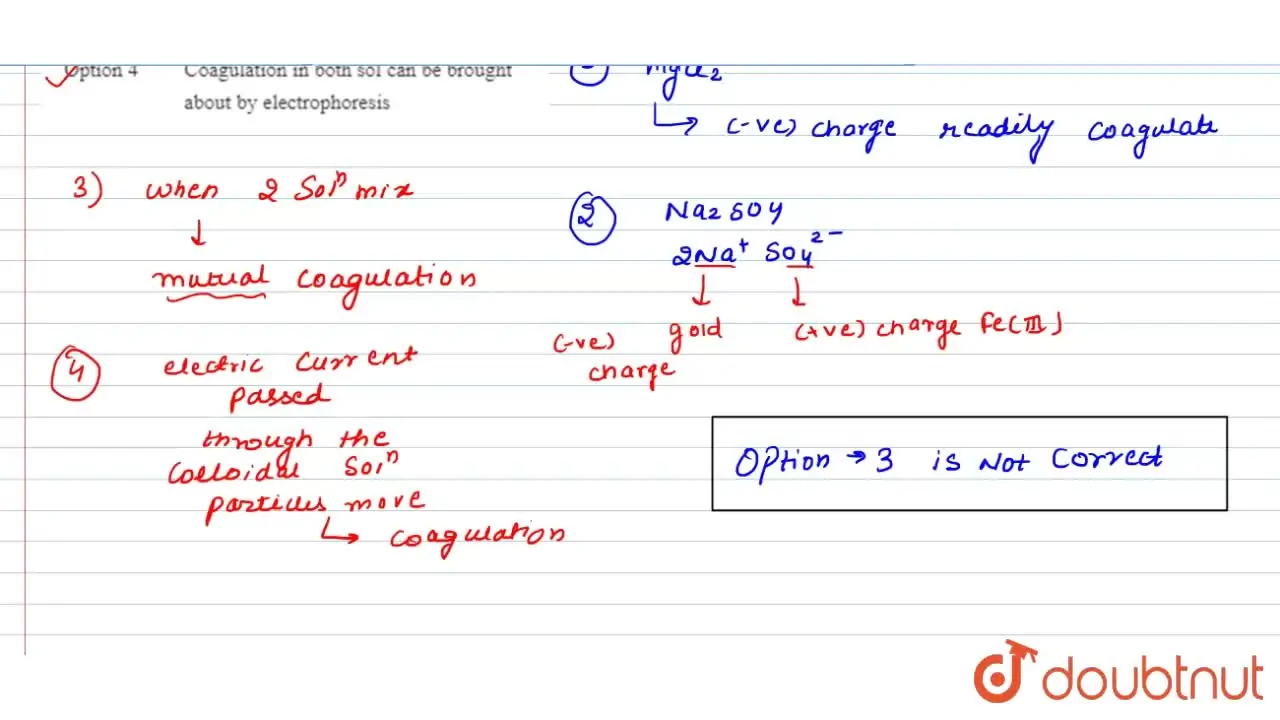 Option 4 Coagulation in both sol can be brought
about by electrophoresis
3) when 2 Solⁿ mix
↓
mutual coagulation
4 electric current
passed
through the
colloidal Solⁿ
particles move
↳ coagulation
MgCl₂
↳ (-ve) charge readily coagulate
2 Na₂SO₄
2Na⁺ SO₄²⁻
↓ ↓
(-ve) gold (+ve) charge Fe(III)
charge
Option → 3 is Not Correct
doubtnut